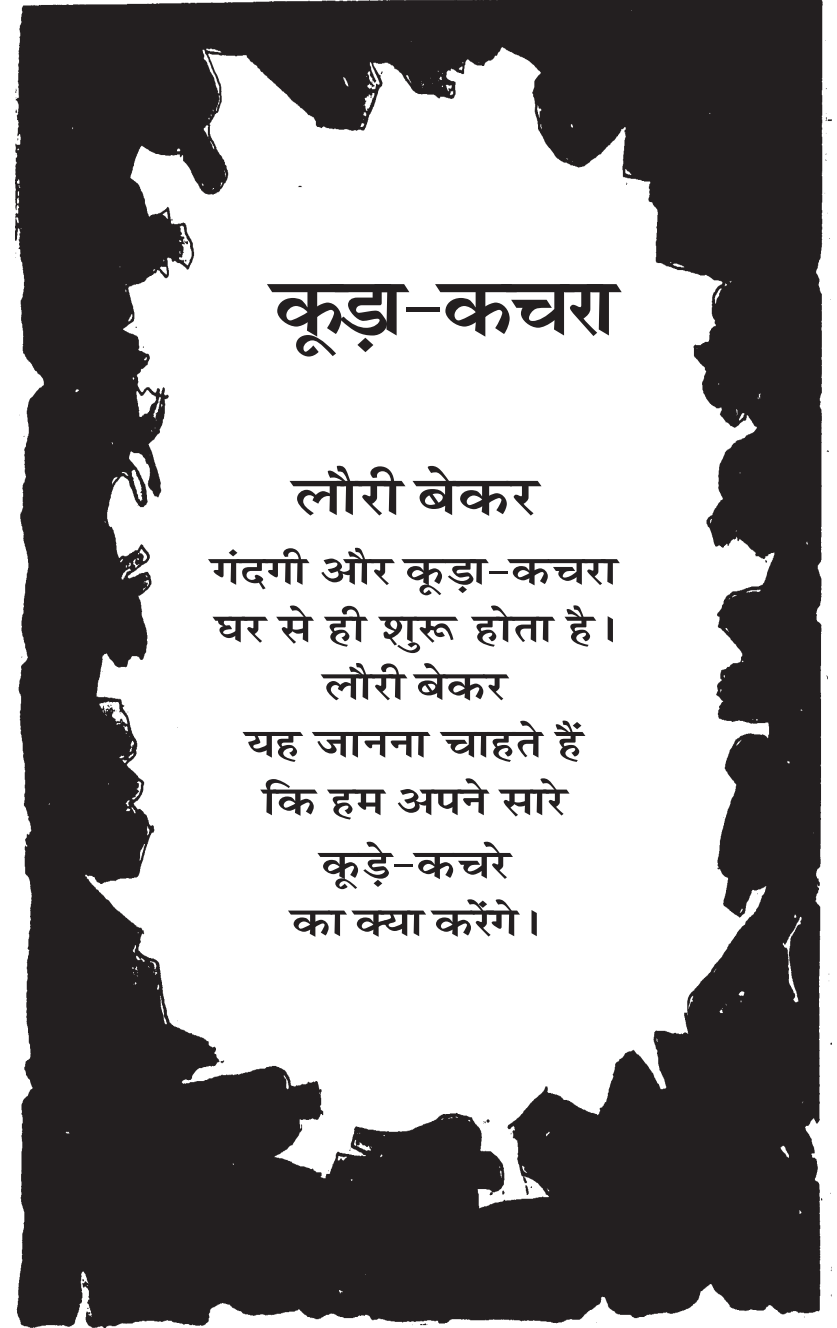 कूड़ा-कचरा
लौरी बेकर
गंदगी और कूड़ा-कचरा
घर से ही शुरू होता है।
लौरी बेकर
यह जानना चाहते हैं
कि हम अपने सारे
कूड़े-कचरे
का क्या करेंगे।